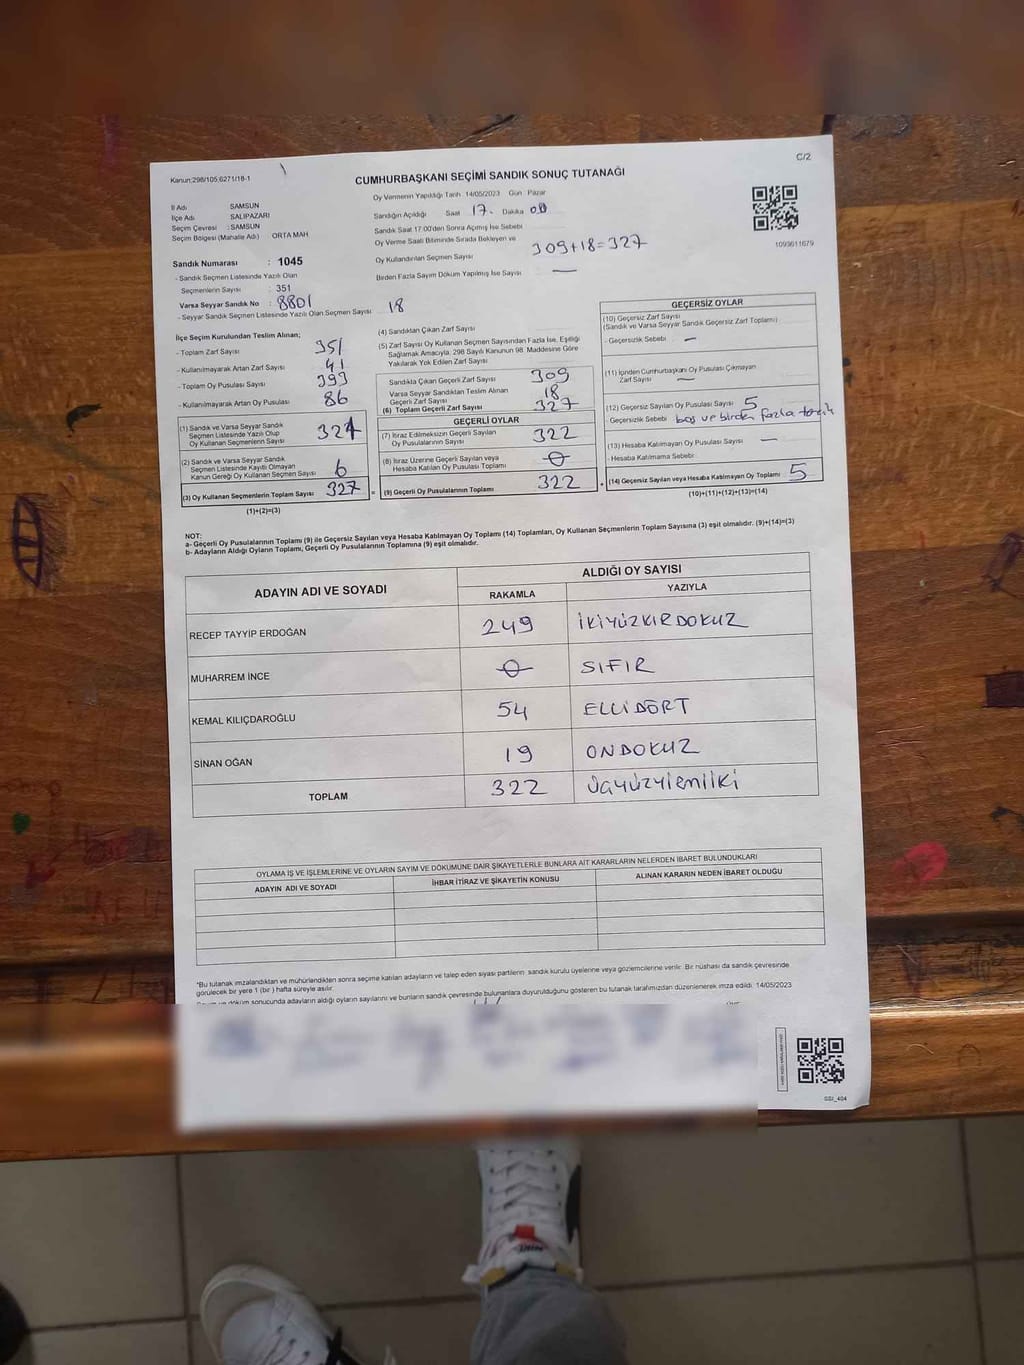 Kanun:298/105,6271/18-1
C/2
CUMHURBAŞKANI SEÇİMİ SANDIK SONUÇ TUTANAĞI
İl Adı SAMSUN
İlçe Adı SALIPAZARI
Seçim Çevresi : SAMSUN
Seçim Bölgesi (Mahalle Adı) ORTA MAH
Oy Vermenin Yapıldığı Tarih :14/05/2023 Gün : Pazar
Sandığın Açıldığı Saat 17. Dakika 00
Sandık Saat 17:00'den Sonra Açılmış İse Sebebi
Oy Verme Saati Bitiminde Sırada Bekleyen ve
Oy Kullandırılan Seçmen Sayısı 309+18=327
Birden Fazla Sayım Döküm Yapılmış İse Sayısı —
1093611679
Sandık Numarası : 1045
- Sandık Seçmen Listesinde Yazılı Olan
Seçmenlerin Sayısı : 351
Varsa Seyyar Sandık No : 8801
- Seyyar Sandık Seçmen Listesinde Yazılı Olan Seçmen Sayısı 18
İlçe Seçim Kurulundan Teslim Alınan;
- Toplam Zarf Sayısı 351
- Kullanılmayarak Artan Zarf Sayısı 41
- Toplam Oy Pusulası Sayısı 393
- Kullanılmayarak Artan Oy Pusulası 86
(1) Sandık ve Varsa Seyyar Sandık
Seçmen Listesinde Yazılı Olup
Oy Kullanan Seçmenlerin Sayısı
(2) Sandık ve Varsa Seyyar Sandık
Seçmen Listesinde Kayıtlı Olmayan
Kanun Gereği Oy Kullanan Seçmen Sayısı 6
(3) Oy Kullanan Seçmenlerin Toplam Sayısı 327
(1)+(2)=(3)
(4) Sandıktan Çıkan Zarf Sayısı
(5) Zarf Sayısı Oy Kullanan Seçmen Sayısından Fazla İse, Eşitliği
Sağlamak Amacıyla, 298 Sayılı Kanunun 98. Maddesine Göre
Yakılarak Yok Edilen Zarf Sayısı
Sandıkta Çıkan Geçerli Zarf Sayısı 309
Varsa Seyyar Sandıktan Teslim Alınan
Geçerli Zarf Sayısı 18
(6) Toplam Geçerli Zarf Sayısı 327
GEÇERLİ OYLAR
(7) İtiraz Edilmeksizin Geçerli Sayılan
Oy Pusulalarının Sayısı 322
(8) İtiraz Üzerine Geçerli Sayılan veya
Hesaba Katılan Oy Pusulası Toplamı 0
= (9) Geçerli Oy Pusulalarının Toplamı 322
GEÇERSİZ OYLAR
(10) Geçersiz Zarf Sayısı
(Sandık ve Varsa Seyyar Sandık Geçersiz Zarf Toplamı)
- Geçersizlik Sebebi : —
(11) İçinden Cumhurbaşkanı Oy Pusulası Çıkmayan
Zarf Sayısı —
(12) Geçersiz Sayılan Oy Pusulası Sayısı 5
Geçersizlik Sebebi boş ve birden fazla tercih
(13) Hesaba Katılmayan Oy Pusulası Sayısı —
- Hesaba Katılmama Sebebi
+ (14) Geçersiz Sayılan veya Hesaba Katılmayan Oy Toplamı 5
(10)+(11)+(12)+(13)=(14)
NOT:
a- Geçerli Oy Pusulalarının Toplamı (9) ile Geçersiz Sayılan veya Hesaba Katılmayan Oy Toplamı (14) Toplamları, Oy Kullanan Seçmenlerin Toplam Sayısına (3) eşit olmalıdır. (9)+(14)=(3)
b- Adayların Aldığı Oyların Toplamı, Geçerli Oy Pusulalarının Toplamına (9) eşit olmalıdır.
ADAYIN ADI VE SOYADI
ALDIĞI OY SAYISI
RAKAMLA YAZIYLA
RECEP TAYYİP ERDOĞAN 249 İKİYÜZKIRDOKUZ
MUHARREM İNCE 0 SIFIR
KEMAL KILIÇDAROĞLU 54 ELLİDÖRT
SİNAN OĞAN 19 ONDOKUZ
TOPLAM 322
OYLAMA İŞ VE İŞLEMLERİNE VE OYLARIN SAYIM VE DÖKÜMÜNE DAİR ŞİKAYETLERLE BUNLARA AİT KARARLARIN NELERDEN İBARET BULUNDUKLARI
ADAYIN ADI VE SOYADI İHBAR İTİRAZ VE ŞİKAYETİN KONUSU ALINAN KARARIN NEDEN İBARET OLDUĞU
"Bu tutanak imzalandıktan ve mühürlendikten sonra seçime katılan adayların ve talep eden siyasi partilerin sandık kurulu üyelerine veya gözlemcilerine verilir. Bir nüshası da sandık çevresinde
görülecek bir yere 1 (bir ) hafta süreyle asılır.
döküm sonucunda adayların aldığı oyların sayılarını ve bunların sandık çevresinde bulunanlara duyurulduğunu gösteren bu tutanak tarafımızdan düzenlenerek imza edildi. 14/05/2023
SSI_404